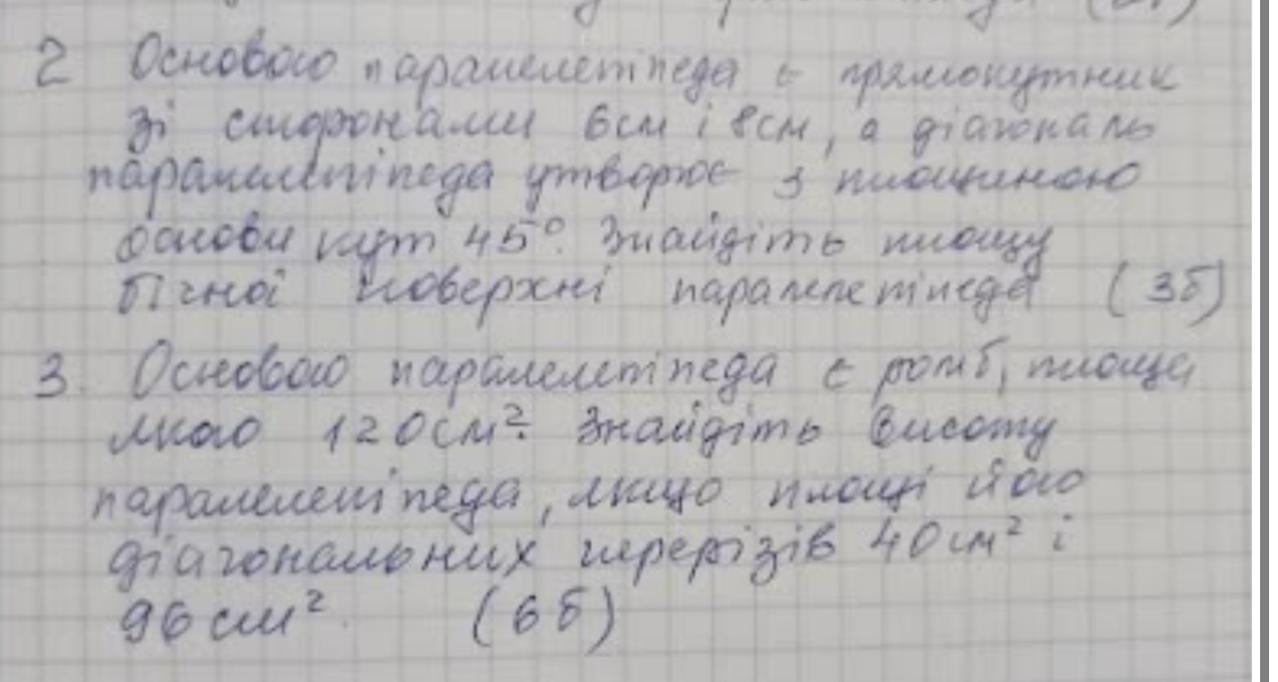 2 Основою паралелепіпеда є прямокутник
зі сторонами 6см і 8см, а діагональ
паралелепіпеда утворює з площиною
основи кут 45°. Знайдіть площу
бічної поверхні паралелепіпеда (3б)
3. Основою паралелепіпеда є ромб, площа
якого 120см². Знайдіть висоту
паралелепіпеда, якщо площі його
діагональних перерізів 40см² і
96 см². (6б)